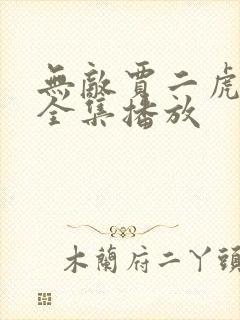 無敵賈二虎
全集播放
木蘭府二丫頭